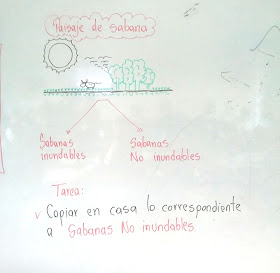 Paisaje de Sabana
Sabanas Sabanas
inundables No inundables
Tarea:
✓ Copiar en casa lo correspondiente
a Sabanas No inundables